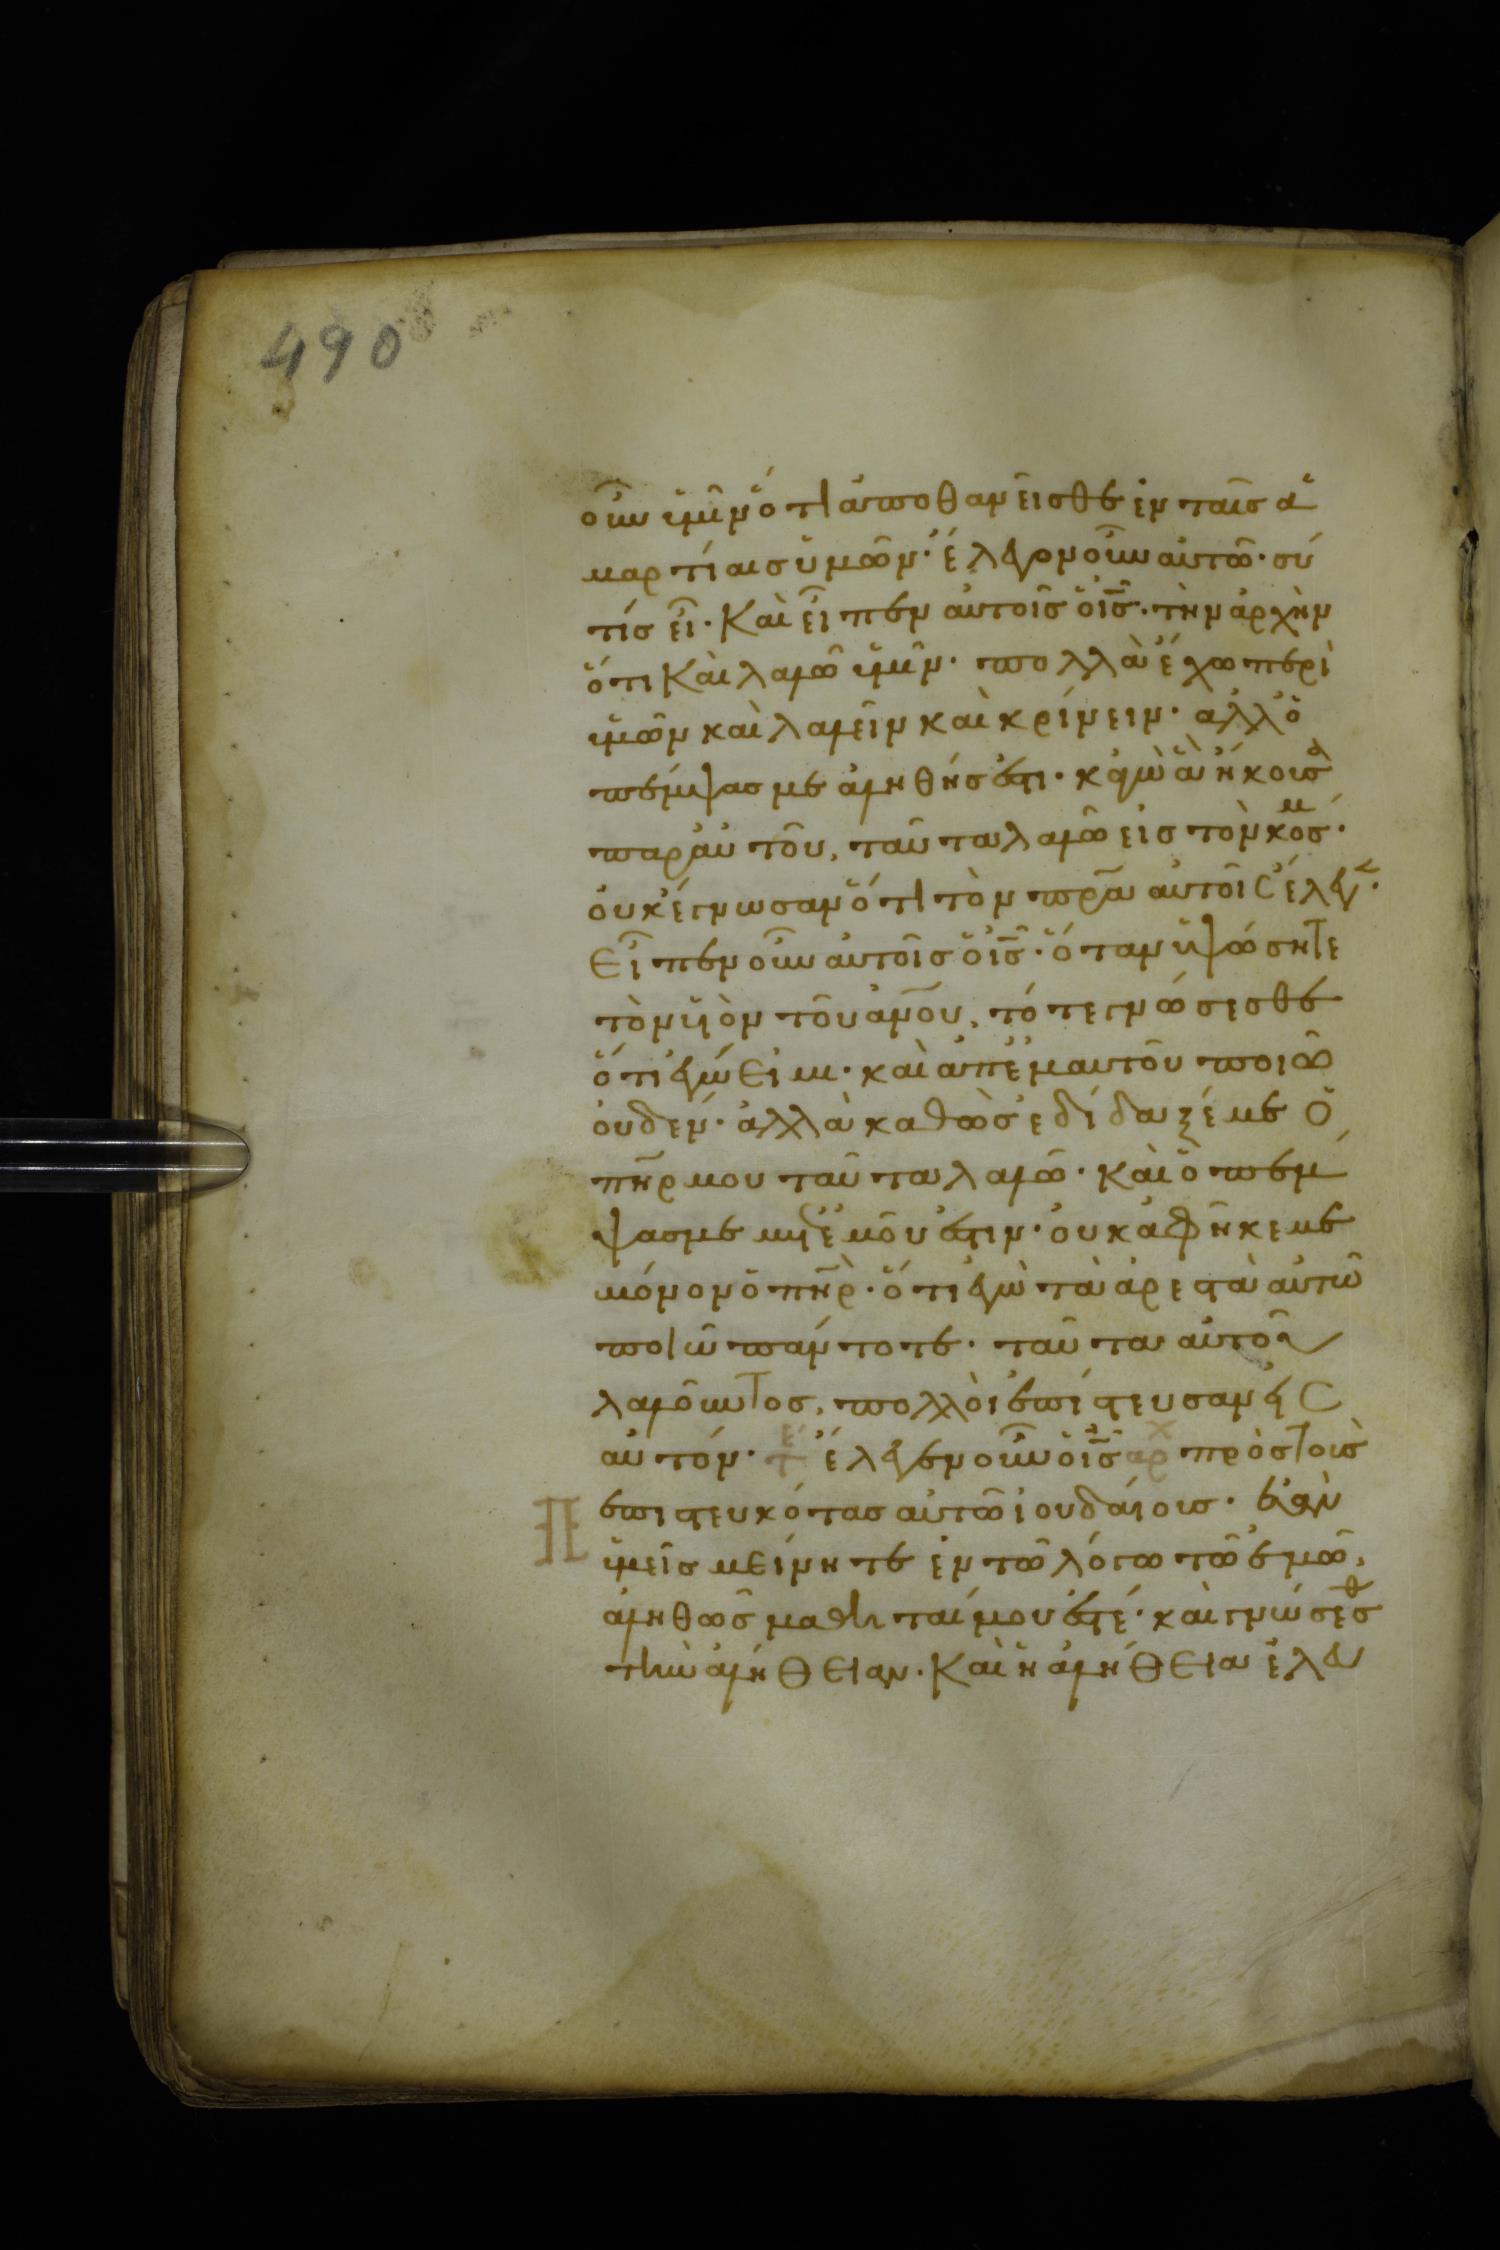 490
οὖν ὑμῖν ὅτι ἀποθανεῖσθε ἐν ταῖς ἁ
μαρτίαις ὑμῶν· ἔλεγον οὖν αὐτῶ· σύ
τίς εἶ· Καὶ εἶπεν αὐτοῖς ὁ ις· τὴν ἀρχὴν
ὅτι Καὶ λαλῶ ὑμῖν· πολλὰ ἔχω περὶ
ὑμῶν καὶ λαλεῖν καὶ κρίνειν· αλλ ὁ
πέμψας με ἀληθής ἐστι· κἀγὼ ἃ ἤκουσα
παρ αὐτοῦ, ταῦτα λαλῶ εἰς τὸν κόσμ·
ὀυκ ἔγνωσαν ὅτι τὸν πρα αὐτοῖς ἔλεγ·
Εἶπεν οὖν αὐτοῖς ὁ ις· ὅταν ὑψώσητε
τὸν ὑιὸν τοῦ ανου, τότε γνώσεσθε
ὅτι ἐγώ Εἰμι· καὶ ἀπ ἐμαυτοῦ ποιῶ
ὀυδεν· ἀλλὰ καθὼς ἐδίδαξέ με Ὁ
πηρ μου ταῦτα λαλῶ· Καὶ ὁ πέμ
ψας με μετ ἐμοῦ ἐστιν· ὀυκ ἀφῆκε με
μόνον ὁ πηρ· ὅτι ἐγὼ τὰ ἀρεστὰ αὐτῶ
ποιῶ πάντοτε· ταῦτα αὐτοῦ
λαλοῦντος, πολλοὶ ἐπίστευσαν εἰς
αὐτόν· τε ἔλεγεν οὖν ὁ ις αρχ πρὸς τοὺς
πεπιστευκότας αὐτῶ ἰουδαίους· ἐὰν
ὑμεῖς μείνητε ἐν τῶ λόγω τῶ ἐμῶ,
ἀληθῶς μαθηταί μου ἐστέ· καὶ γνώσεσθ
τὴν ἀλήθειαν· Καὶ ἡ ἀλήθεια ἐλευ